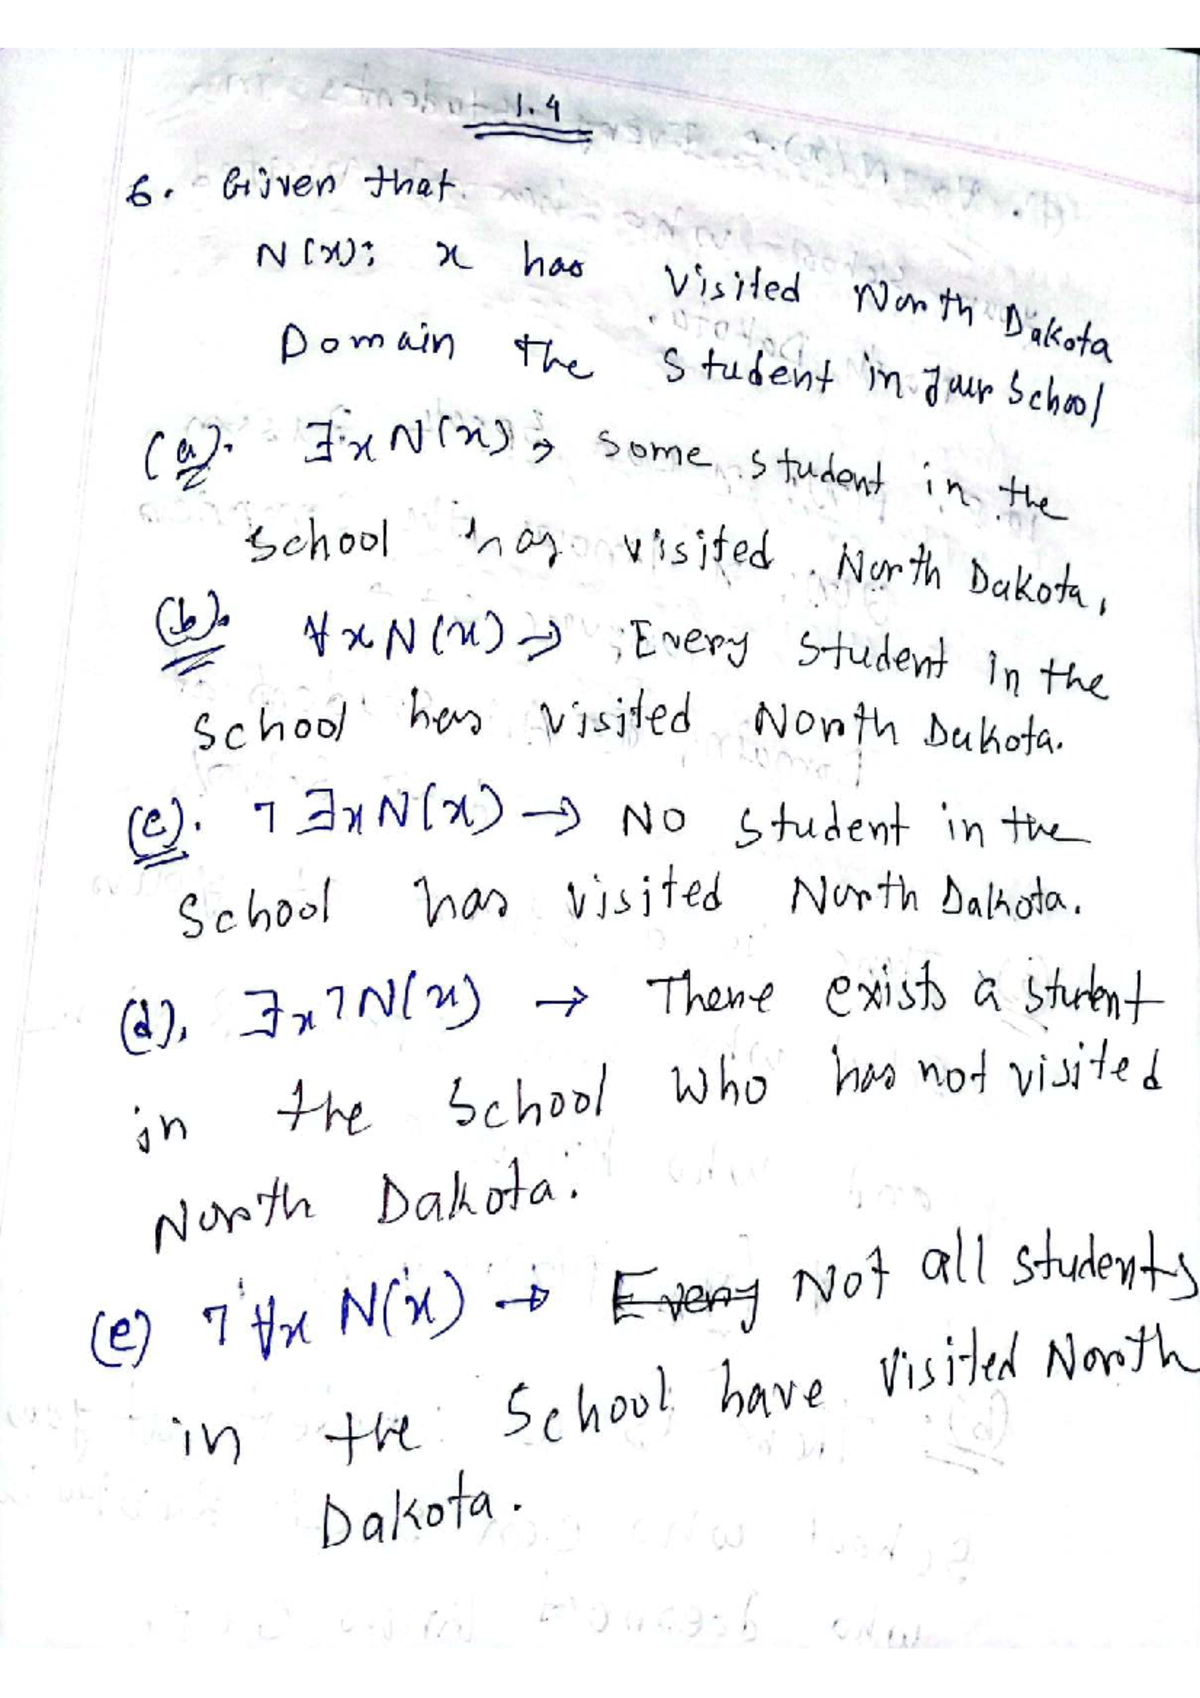 1.4
6. Given that
N(x): x has visited North Dakota
Domain the student in your School
(a). ∃x N(x) → Some student in the
school has visited North Dakota,
(b). ∀x N(x) → Every student in the
school has visited North Dakota.
(c). ¬∃x N(x) → NO student in the
School has visited North Dakota.
(d). ∃x ¬N(x) → There exists a student
in the School who has not visited
North Dakota.
(e) ¬∀x N(x) → Every Not all students
in the School have visited North
Dakota.